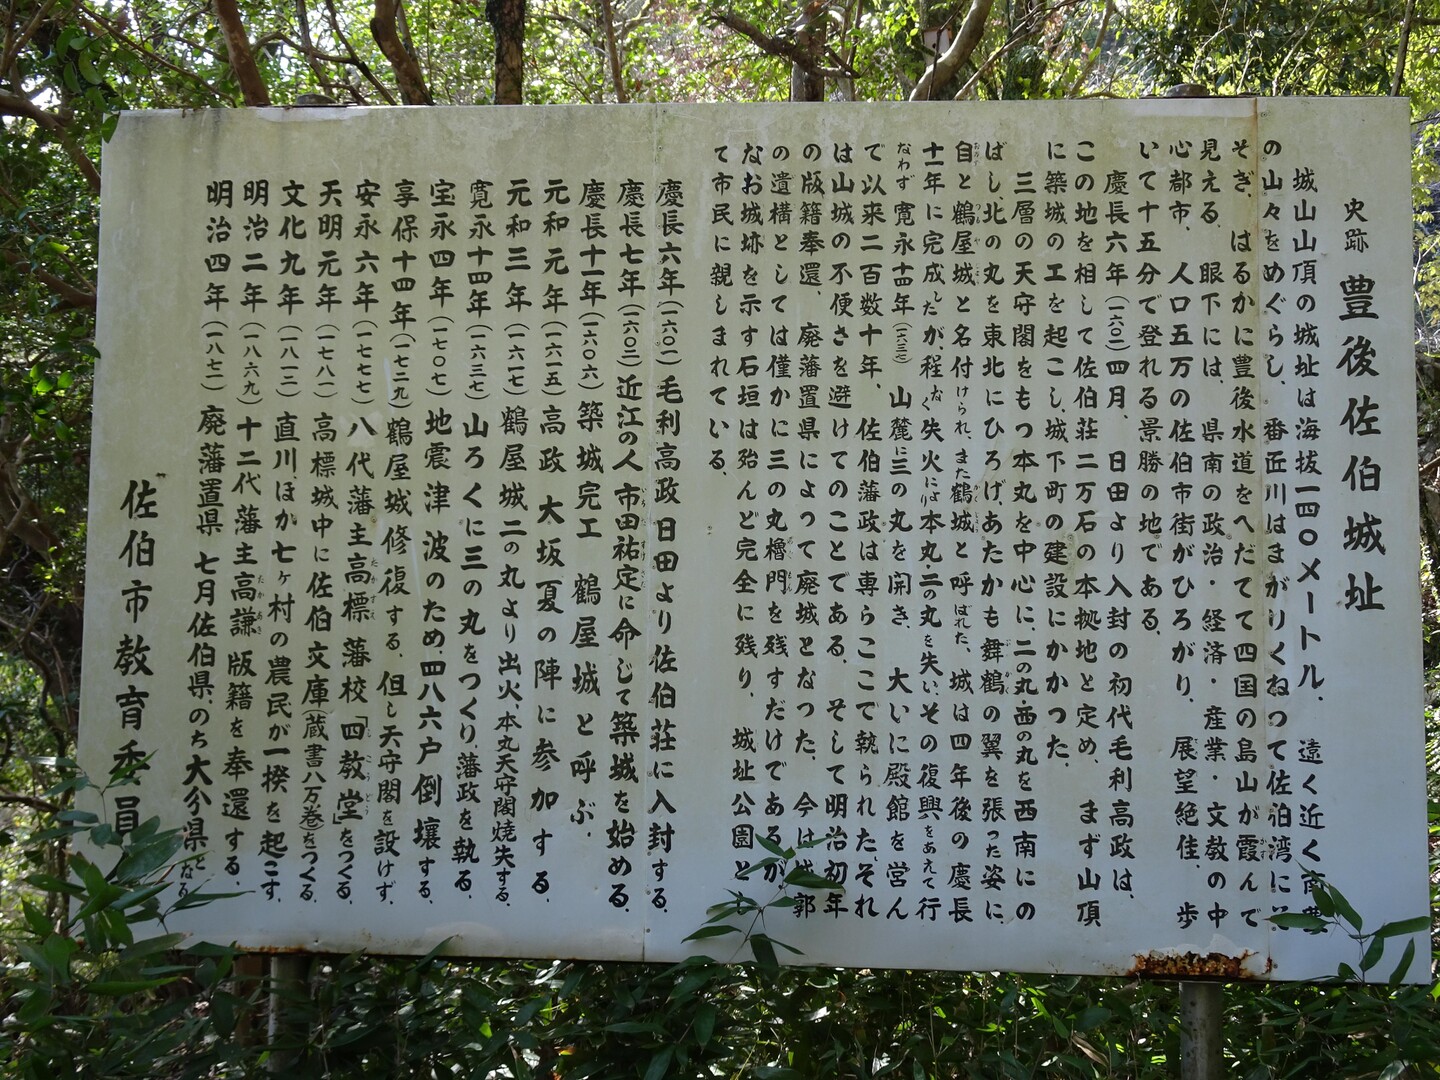 史跡 豊後佐伯城址
城山山頂の城址は海抜一四〇メートル、遠く近く南豊
の山々をめぐらし、番匠川はまがりくねつて佐泊湾にそ
そぎ、はるかに豊後水道をへだてて四国の島山が霞んで
見える、眼下には、県南の政治・経済・産業・文教の中
心都市、人口五万の佐伯市街がひろがり、展望絶佳、歩
いて十五分で登れる景勝の地である、
慶長六年(一六〇一)四月、日田より入封の初代毛利高政は、
この地を相して佐伯荘二万石の本拠地と定め、まず山頂
に築城の工を起こし、城下町の建設にかかつた、
三層の天守閣をもつ本丸を中心に、二の丸・西の丸を西南にの
ばし、北の丸を東北にひろげ、あたかも舞鶴の翼を張った姿に、
自と鶴屋城と名付けられ、また鶴城と呼ばれた、城は四年後の慶長
十一年に完成したが、程なく失火により本丸・二の丸を失い、その復興をあえて行
なわず 寛永十四年(一六三七)山麓に三の丸を開き、大いに殿館を営ん
で以来二百数十年、佐伯藩政は専らここで執られた、それ
は山城の不便さを避けてのことである、そして明治初年
の版籍奉還、廃藩置県によって廃城となつた、今は城郭
の遺構としては僅かに三の丸櫓門を残すだけであるが
なお城跡を示す石垣は殆んど完全に残り、城址公園と
て市民に親しまれている、
慶長六年(一六〇一)毛利高政日田より佐伯荘に入封する、
慶長七年(一六〇二)近江の人市田祐定に命じて築城を始める、
慶長十一年(一六〇六)築城完工 鶴屋城と呼ぶ、
元和元年(一六一五)高政 大坂夏の陣に参加する、
元和三年(一六一七)鶴屋城二の丸より出火、本丸天守閣焼失する、
寛永十四年(一六三七)山ろくに三の丸をつくり、藩政を執る、
宝永四年(一七〇七)地震津波のため、四八六戸倒壊する、
享保十四年(一七二九)鶴屋城修復する、但し天守閣を設けず、
安永六年(一七七七)八代藩主高標 藩校「四教堂」をつくる、
天明元年(一七八一)高標城中に佐伯文庫(蔵書八万巻)をつくる、
文化九年(一八一二)直川、ほか七ヶ村の農民が一揆を起こす、
明治二年(一八六九)十二代藩主高謙 版籍を奉還する、
明治四年(一八七一)廃藩置県 七月佐伯県、のち大分県となる、
佐伯市教育委員